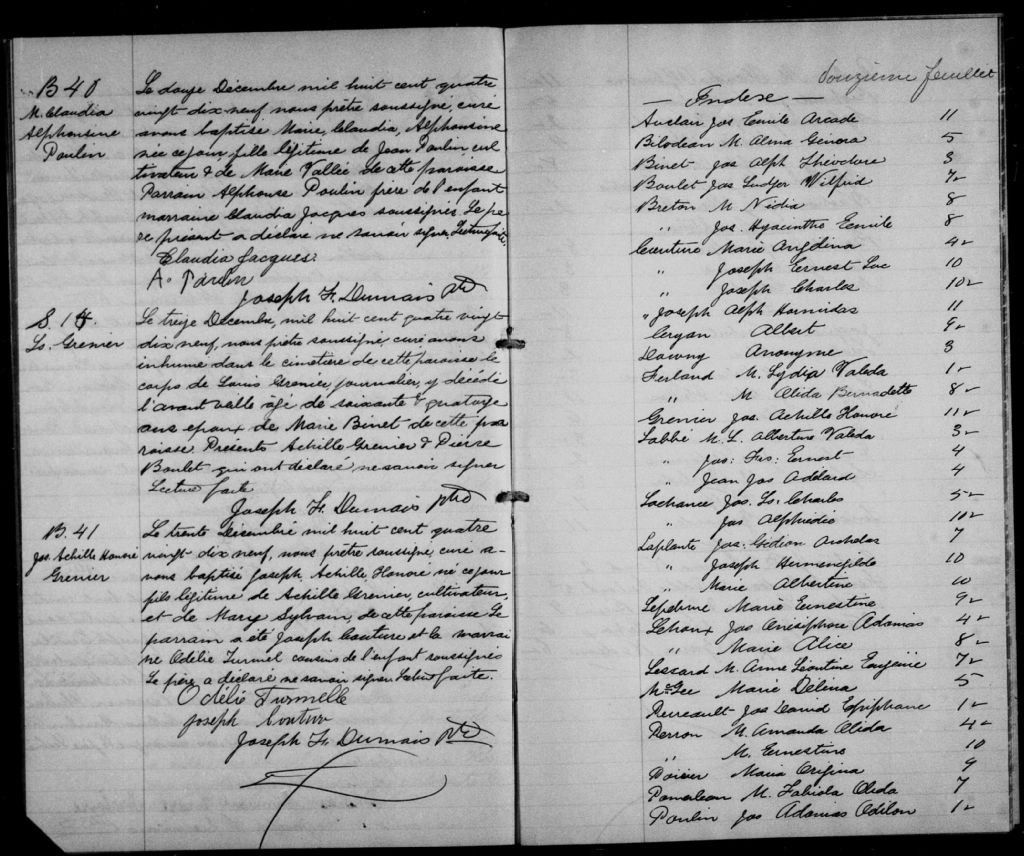 B 40
M. Claudia
Alphonsine
Poulin
Le douze Décembre mil huit cent quatre
vingt dix neuf, nous prêtre soussigné, curé
avons baptisé Marie, Claudia, Alphonsine
née ce jour fille légitime de Jean Poulin cul
tivateur & de Marie Vallée de cette paroisse
Parrain Alphonse Poulin frère de l'enfant
marraine Claudia Jacques soussignés. Le pè
re présent a déclaré ne savoir signer. Lecture faite.
Claudia Jacques.
A. Poulin
Joseph F. Dumais ptre
S. 15.
Ls. Grenier
Le treize Décembre, mil huit cent quatre vingt
dix neuf, nous prêtre soussigné curé avons
inhumé dans le cimetière de cette paroisse le
corps de Louis Grenier, journalier, y décédé
l'avant veille âgé de soixante & quatorze
ans epoux de Marie Binet de cette pa
roisse. Présents Achille Grenier & Pierre
Boulet qui ont déclaré ne savoir signer
Lecture faite
Joseph F. Dumais ptre
B. 41
Jos. Achille Honoré
Grenier
Le trente Décembre mil huit cent quatre
vingt dix neuf, nous prêtre soussigné, curé a-
vons baptisé Joseph, Achille Honoré né ce jour
fils légitime de Achille Grenier, cultivateur,
et de Mary Sylvain, de cette paroisse Le
parrain a été Joseph Couture et la marrai
ne Odélie Turmel cousins de l'enfant soussignés
Le père a déclaré ne savoir signer. Lecture faite.
Odélie Turmelle
Joseph Coutur
Joseph F. Dumais ptre
Douzieme feuillet
— Index —
Auclair Jos Emile Arcade 11
Bilodeau M. Alma Genora 5
Binet Jos Alph Théodore 3
Boulet Jos Ludger Wilfrid 7v
Breton M. Nidia 8
" Jos. Hyacinthe Emile 8
Couture Marie Angelina 4v
" Joseph Ernest Luc 10
" Joseph Charles 10v
" Joseph Alph Hormidas 11
Albert 9v
Anonyme 3
Ferland M. Lydia Valeda 1v
" M. Alida Bernadette 8v
Grenier Jos. Achille Honoré 11v
Labbé M. L. Albertine Valeda 3v
" Jos: Frs: Ernest 4
" Jean Jos Addard 4
Lachance Jos. Ls. Charles 5v
" Jos Alphédie 10v
Laplante Jos. Gédéon 7
" Joseph Hermenegilde 10
" Marie Albertine 10
Lefebvre Marie Ernestine 9v
Lehoux Jos Onésiphore Adamas 4v
" Marie Alice 8v
Lessard M. Anne Léontine Eugénie 7v
McGee Marie Délima 5
Perreault Jos David Epiphane 1v
Perron M. Amanda Alida 4v
" M. Ernestine 10
Poirier Maria Origina 9
Pomerleau M. Fabiola Alida 7
Poulin Jos Adamas Odilon 1v